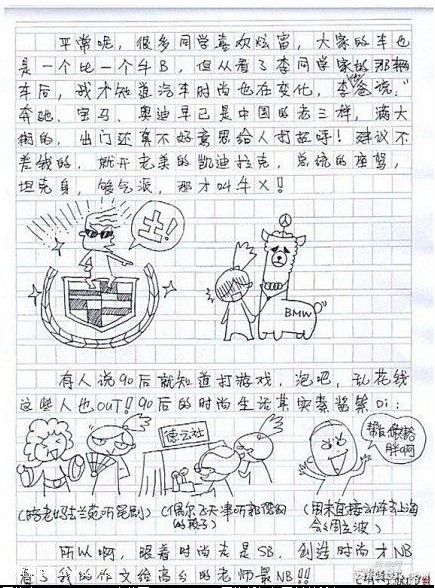 平常呢，很多同学喜欢炫富，大家的车也
是一个比一个牛B，但从看了李同学家的那辆
车后，我才知道汽车时尚也在变化，李爸说，"
奔驰、宝马、奥迪早已是中国的老三样，满大
街的，出门还真不好意思给人打招呼！建议不
差钱的，就开老美的凯迪拉克，总统的座驾，
坦克身，够气派，那才叫牛X！
土！
BMW
有人说90后就知道打游戏，泡吧，乱花钱
这些人也OUT！90后的时尚生活其实素酱紫Di：
德云社
(陪老妈去兰苑听昆剧)
(偶尔飞天津听郭德纲
的段子)
(周末直接动车去上海
会周立波)
所以啊，跟着时尚走SB，创造时尚才NB
看了我的作文给高分的老师最NB！！